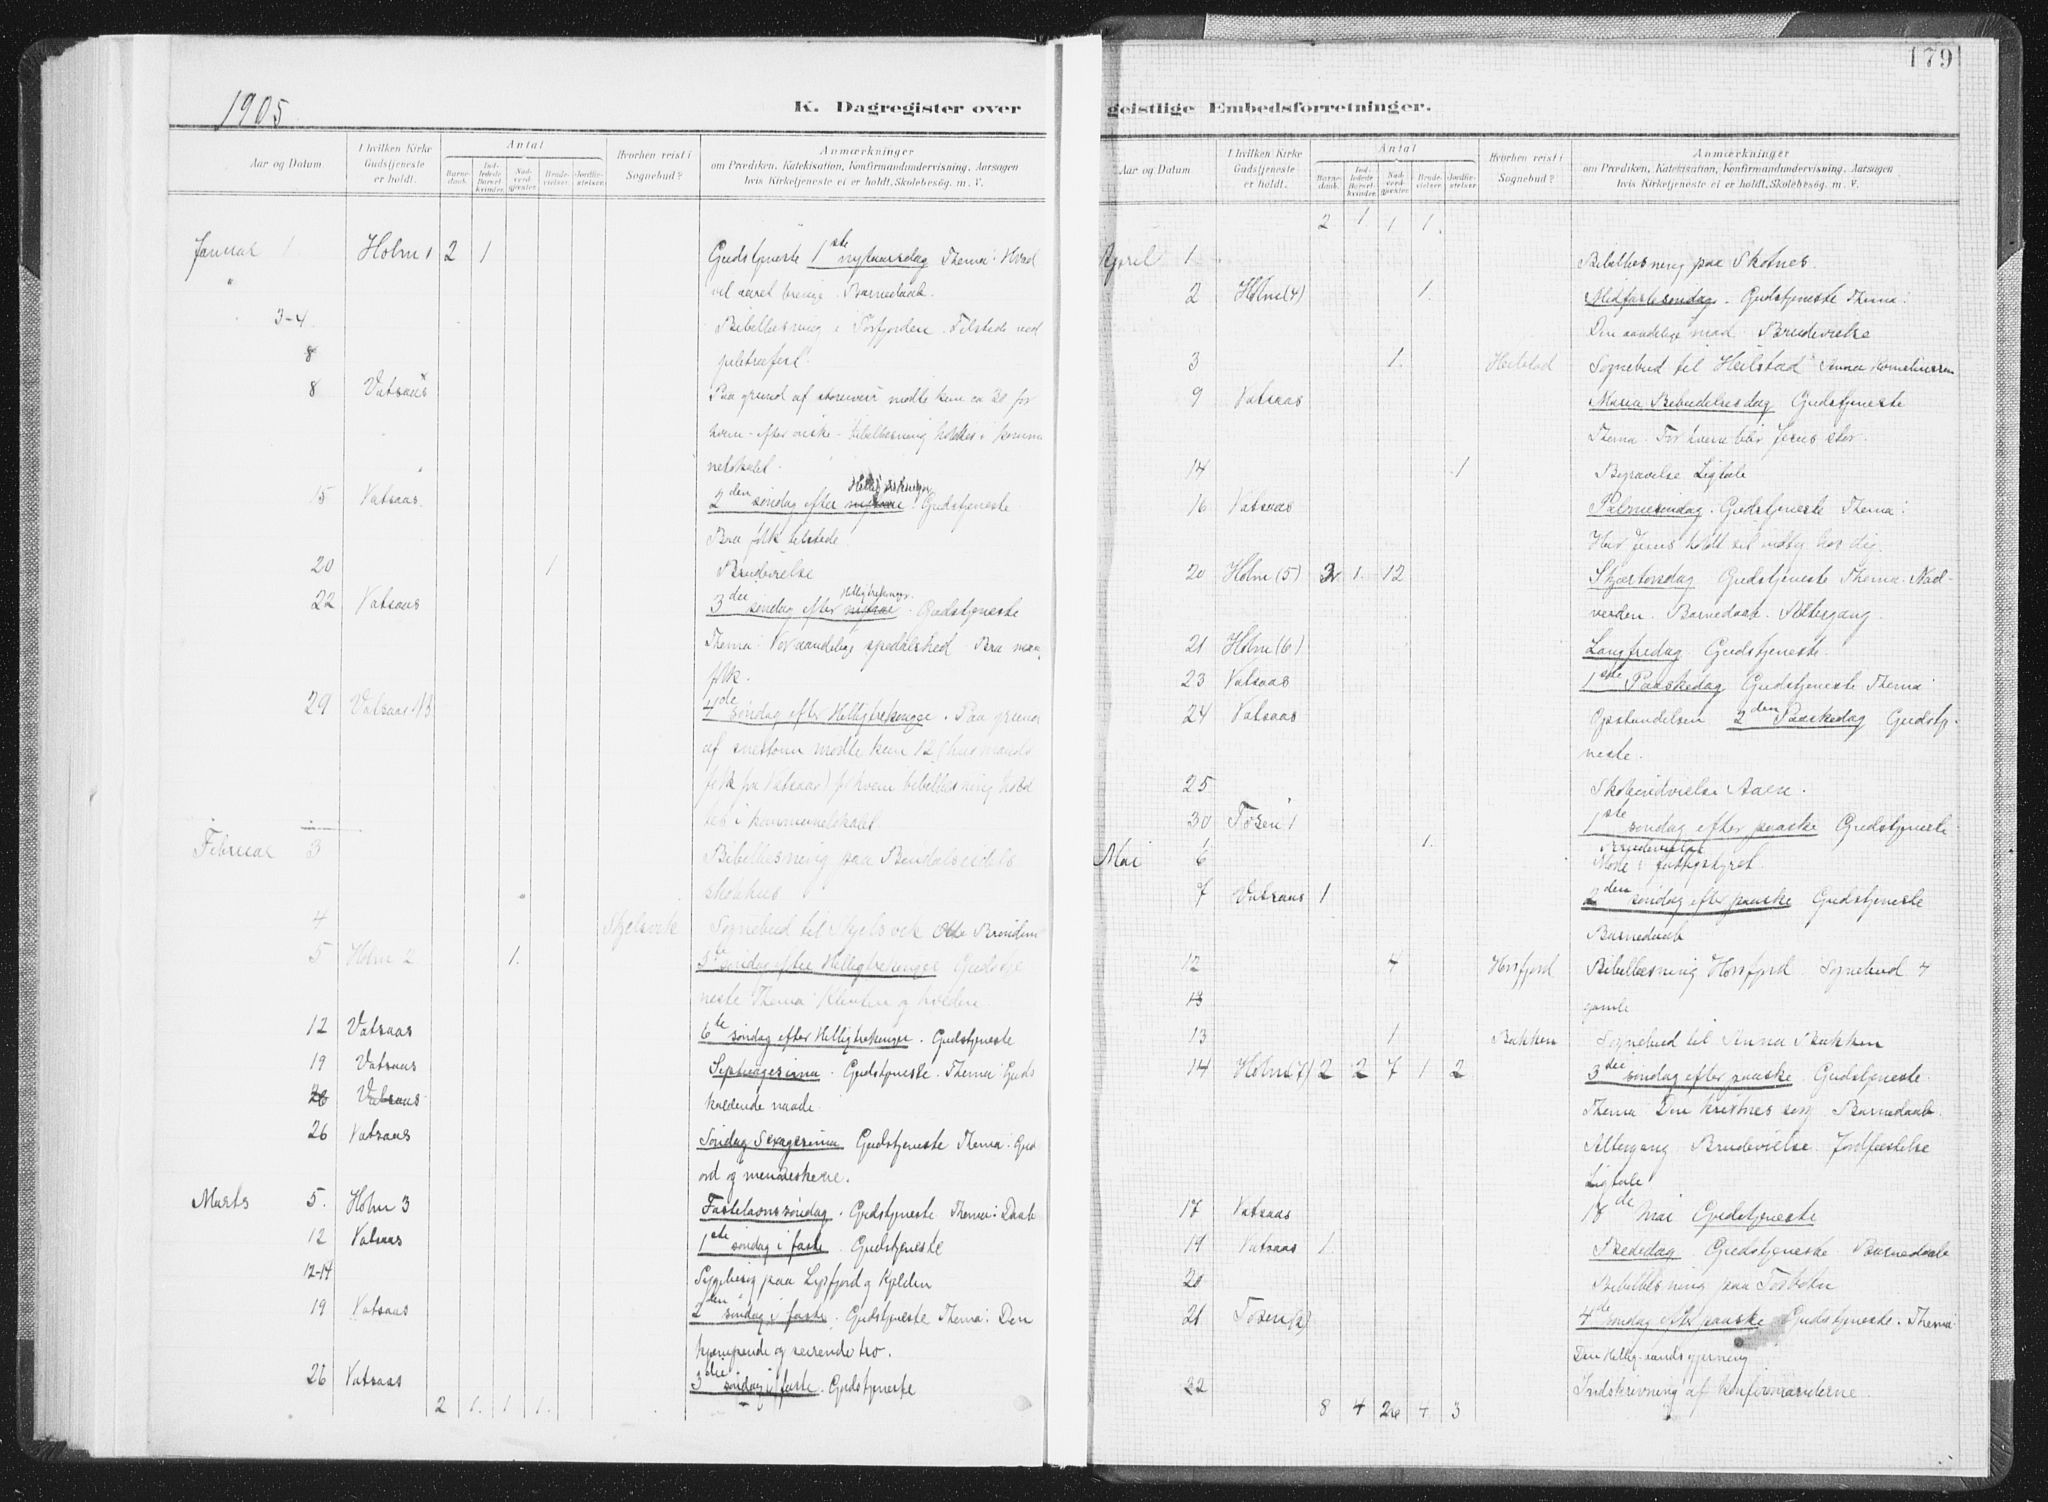 1905
K. Dagregister over
Aar og Datum.
I hvilken Kirke Gudstjeneste er holdt.
Antal
Barnedaab.
Indledede Barselkvinder.
Nadverdgjester.
Brudevielser.
Jordfæstelser.
Hvorhen reist i Sognebud?
Anmærkninger
om Prædiken, Katekisation, Konfirmandundervisning, Aarsagen
hvis Kirketjeneste ei er holdt, Skolebesøg. m. V.
Januar 1 Holm 1 2 1 Gudstjeneste 1ste nytaarsdag Thema: Hvad
" vil aaret bringe. Barnedaab.
3-4 Bibellæsning i Tosfjorden. Tilstede ved
8 juletræfest.
8 Vatsaas Paa grund af storveir mødte kun ca 20 for
hvem - efter ønske - bibellæsning holdtes i kommu
nelokalet.
15 Vatsaas 2den søndag efter Helligtrekonger. Gudstjeneste
Bra folk tilstede.
20 1 Brudevielse
22 Vatsaas 3die søndag efter Helligtrekonger. Gudstjeneste
Thema: Vor aandelige spedalskhed. Bra
folk.
29 Vatsaas 4de søndag efter Helligtrekonger. Paa grund
af snestorm mødte kun 12 (husmands
folk fra Vatsaas) for hvem bibellæsning hold
tes i kommunelokalet
Februar 3 Bibellæsning paa Bindalseidets
skolehus
4 Skjelsvik Sognebud til Skjelsvik
5 Holm 2 1. 5te søndag efter Helligtrekonger Gudstje
neste Thema: Klinten og hveden
12 Vatsaas 6te søndag efter Helligtrekonger. Gudstjeneste
19 Vatsaas Septuagesima. Gudstjeneste. Thema: Guds
26 Vatsaas kaldende naade.
26 Vatsaas Søndag Sexagesima Gudstjeneste Thema: Guds
ord og menneskene.
Marts 5. Holm 3 Fastelavnssøndag. Gudstjeneste Thema: Daab
12 Vatsaas 1ste søndag i faste. Gudstjeneste
12-14 paa Lysfjord og Kjelden
19 Vatsaas 2den søndag i faste. Gudstjeneste Thema: Den
kjæmpende og seirende tro.
26 Vatsaas 3die søndag i faste. Gudstjeneste
2 1. 1 1.
179
geistlige Embedsforretninger.
Aar og Datum
I hvilken Kirke Gudstjeneste er holdt.
Antal
Barnedaab.
Indledede Barselkvinder.
Nadverdgjester.
Brudevielser.
Jordfæstelser.
Hvorhen reist i Sognebud?
Anmærkninger
om Prædiken, Katekisation, Konfirmandundervisning, Aarsagen
hvis Kirketjeneste ei er holdt, Skolebesøg. m. V.
2 1 1 1.
April 1 Bibellæsning paa Skotnes.
2 Holm (4) 1. Midfastesøndag. Gudstjeneste Thema:
Den aandelige mad. Brudevielse
3 1. Heilstad Sognebud til Heilstad Anna Korneliussen
9 Vatsaas Maria Bebudelsesdag Gudstjeneste
Thema: For hvem blir Jesus stor.
14 1 Begravelse Ligtale
16 Vatsaas Palmesøndag. Gudstjeneste Thema:
Har Jesus holdt sit indtog hos dig.
20 Holm (5) 3 1. 12 Skjærtorsdag Gudstjeneste Thema: Nad-
verden. Barnedaab. Altergang.
21 Holm (6) Langfredag Gudstjeneste.
23 Vatsaas 1ste Paaskedag Gudstjeneste Thema:
24 Vatsaas Opstandelsen 2den Paaskedag Gudstje-
neste.
25 Skoleindvielse Aaen.
30 Tosen 1 1ste søndag efter paaske Gudstjeneste
1. Brudevielse
Mai 6 Møde i fattigstyret.
7 Vatsaas 1 2den søndag efter paaske Gudstjeneste
Barnedaab
12 4 Horsfjord Bibellæsning Horsfjord. Sognebud 4
13 gamle
13 1 Bakken Sognebud til Anna Bakken
14 Holm (7) 2 2 7 1 2 3die søndag efter paaske. Gudstjeneste.
Thema: Den kristnes sorg. Barnedaab.
Altergang Brudevielse. Jordfæstelse
Ligtale
17 Vatsaas 17de Mai Gudstjeneste
19 Vatsaas 1. Bededag Gudstjeneste. Barnedaab
20 Bibellæsning paa Tosbotn
21 Tosen (2) 4de søndag efter paaske Gudstjeneste. Thema:
Den Hellig-aands gjerning
22 Indskrivning af konfirmanderne
8 4 4 3